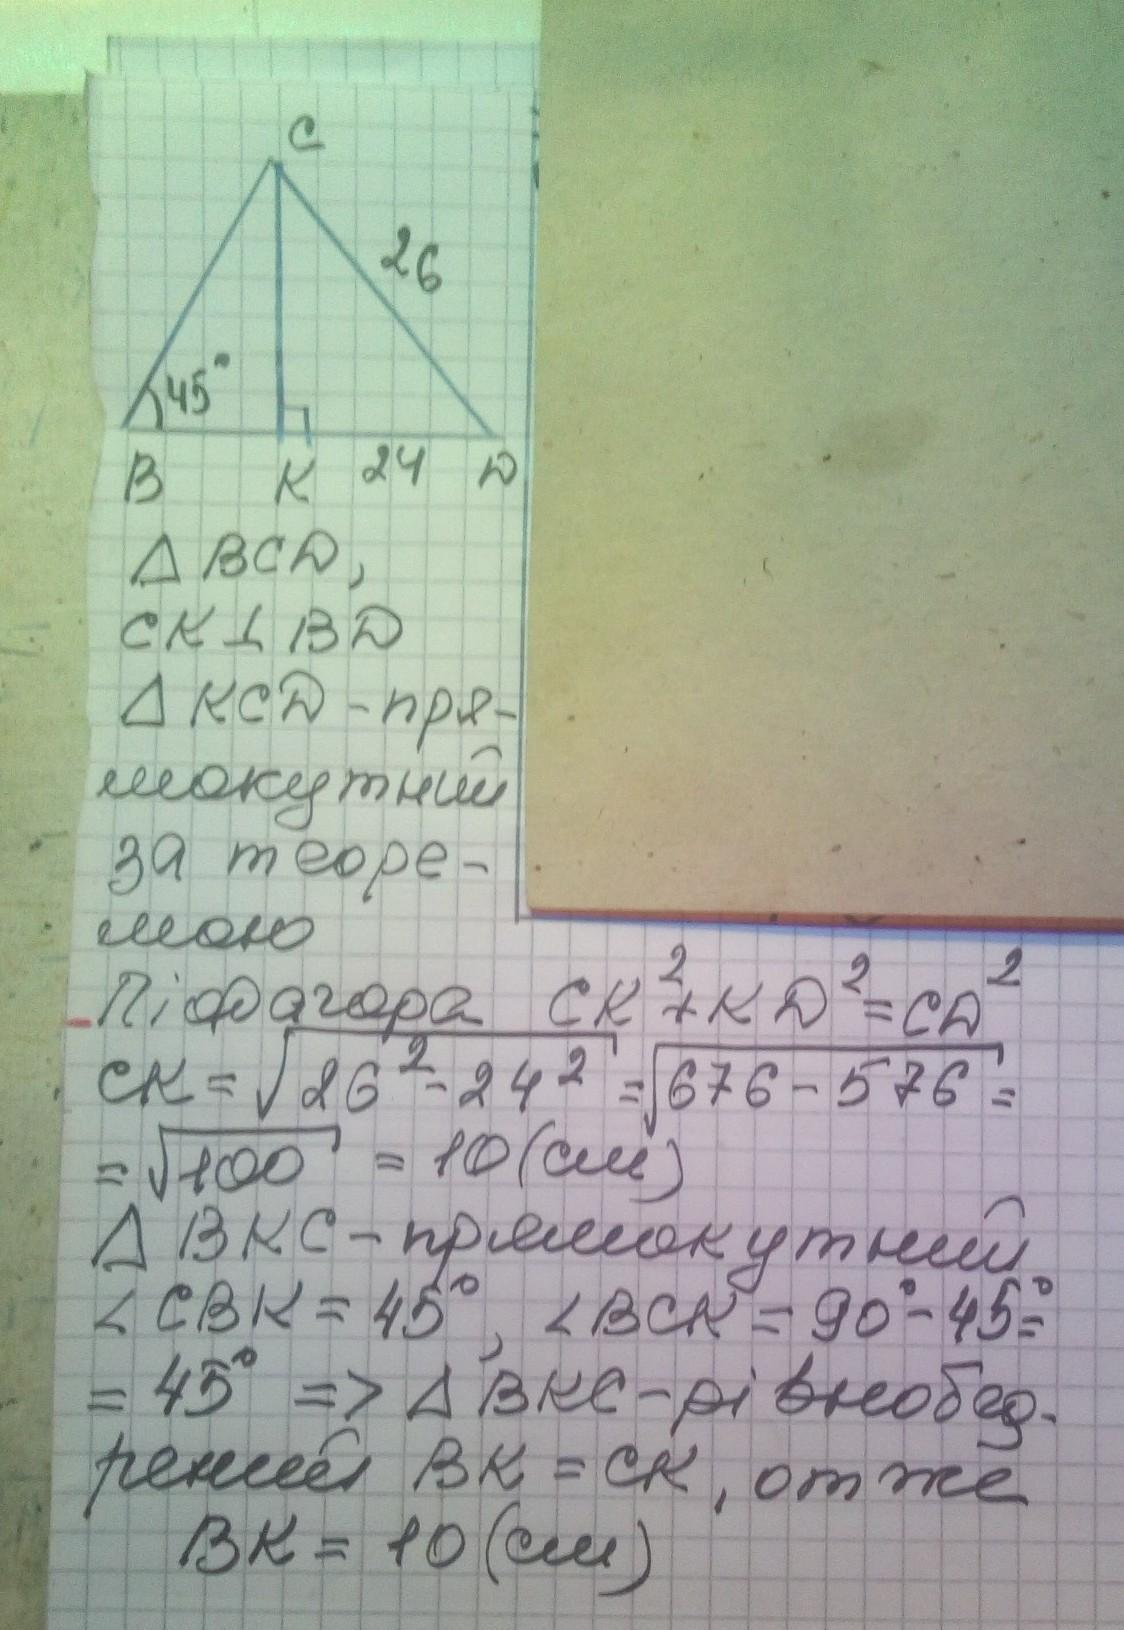 C
26
45°
B K 24 D
Δ BCD,
CK⊥BD
Δ KCD - пря-
мокутний
за теоре-
мою
Піфагора CK²+KD²=CD²
CK = √26²-24² = √676-576 =
= √100 = 10 (см)
Δ BKC - прямокутний
∠CBK = 45°, ∠BCK = 90°-45°=
= 45° => Δ BKC - рівнобед-
рений BK = CK, отже
BK = 10 (см)